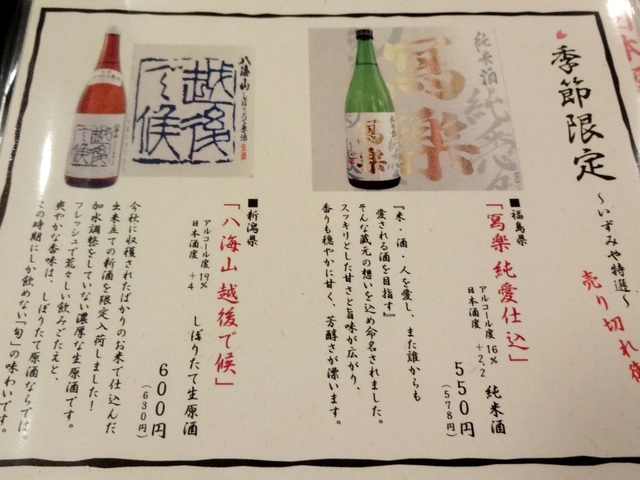 季節限定
～いずみや特選～
売り切れ
■福島県
「寫楽 純愛仕込」
純米酒
アルコール度 16%
日本酒度 +2.2
550円
(578円)
『米・酒・人を愛し、また誰からも
愛される酒を目指す』
そんな蔵元の想いを込め命名されました。
スッキリとした甘さと旨味が広がり、
香りも穏やかに甘く、芳醇さが漂います。
純米酒
純愛
寫樂
寫樂
■新潟県
「八海山 越後で候」
しぼりたて生原酒
アルコール度 19%
日本酒度 +4
600円
(630円)
今秋に収穫されたばかりのお米で仕込んだ
出来立ての新酒を限定入荷しました！
加水調整をしていない濃厚な生原酒です。
フレッシュで荒々しい飲みごたえと、
爽やかな香味は、しぼりたて原酒ならでは。
この時期にしか飲めない「旬」の味わいです。
八海山
しぼりたて原酒
越後
で候
越後
で候